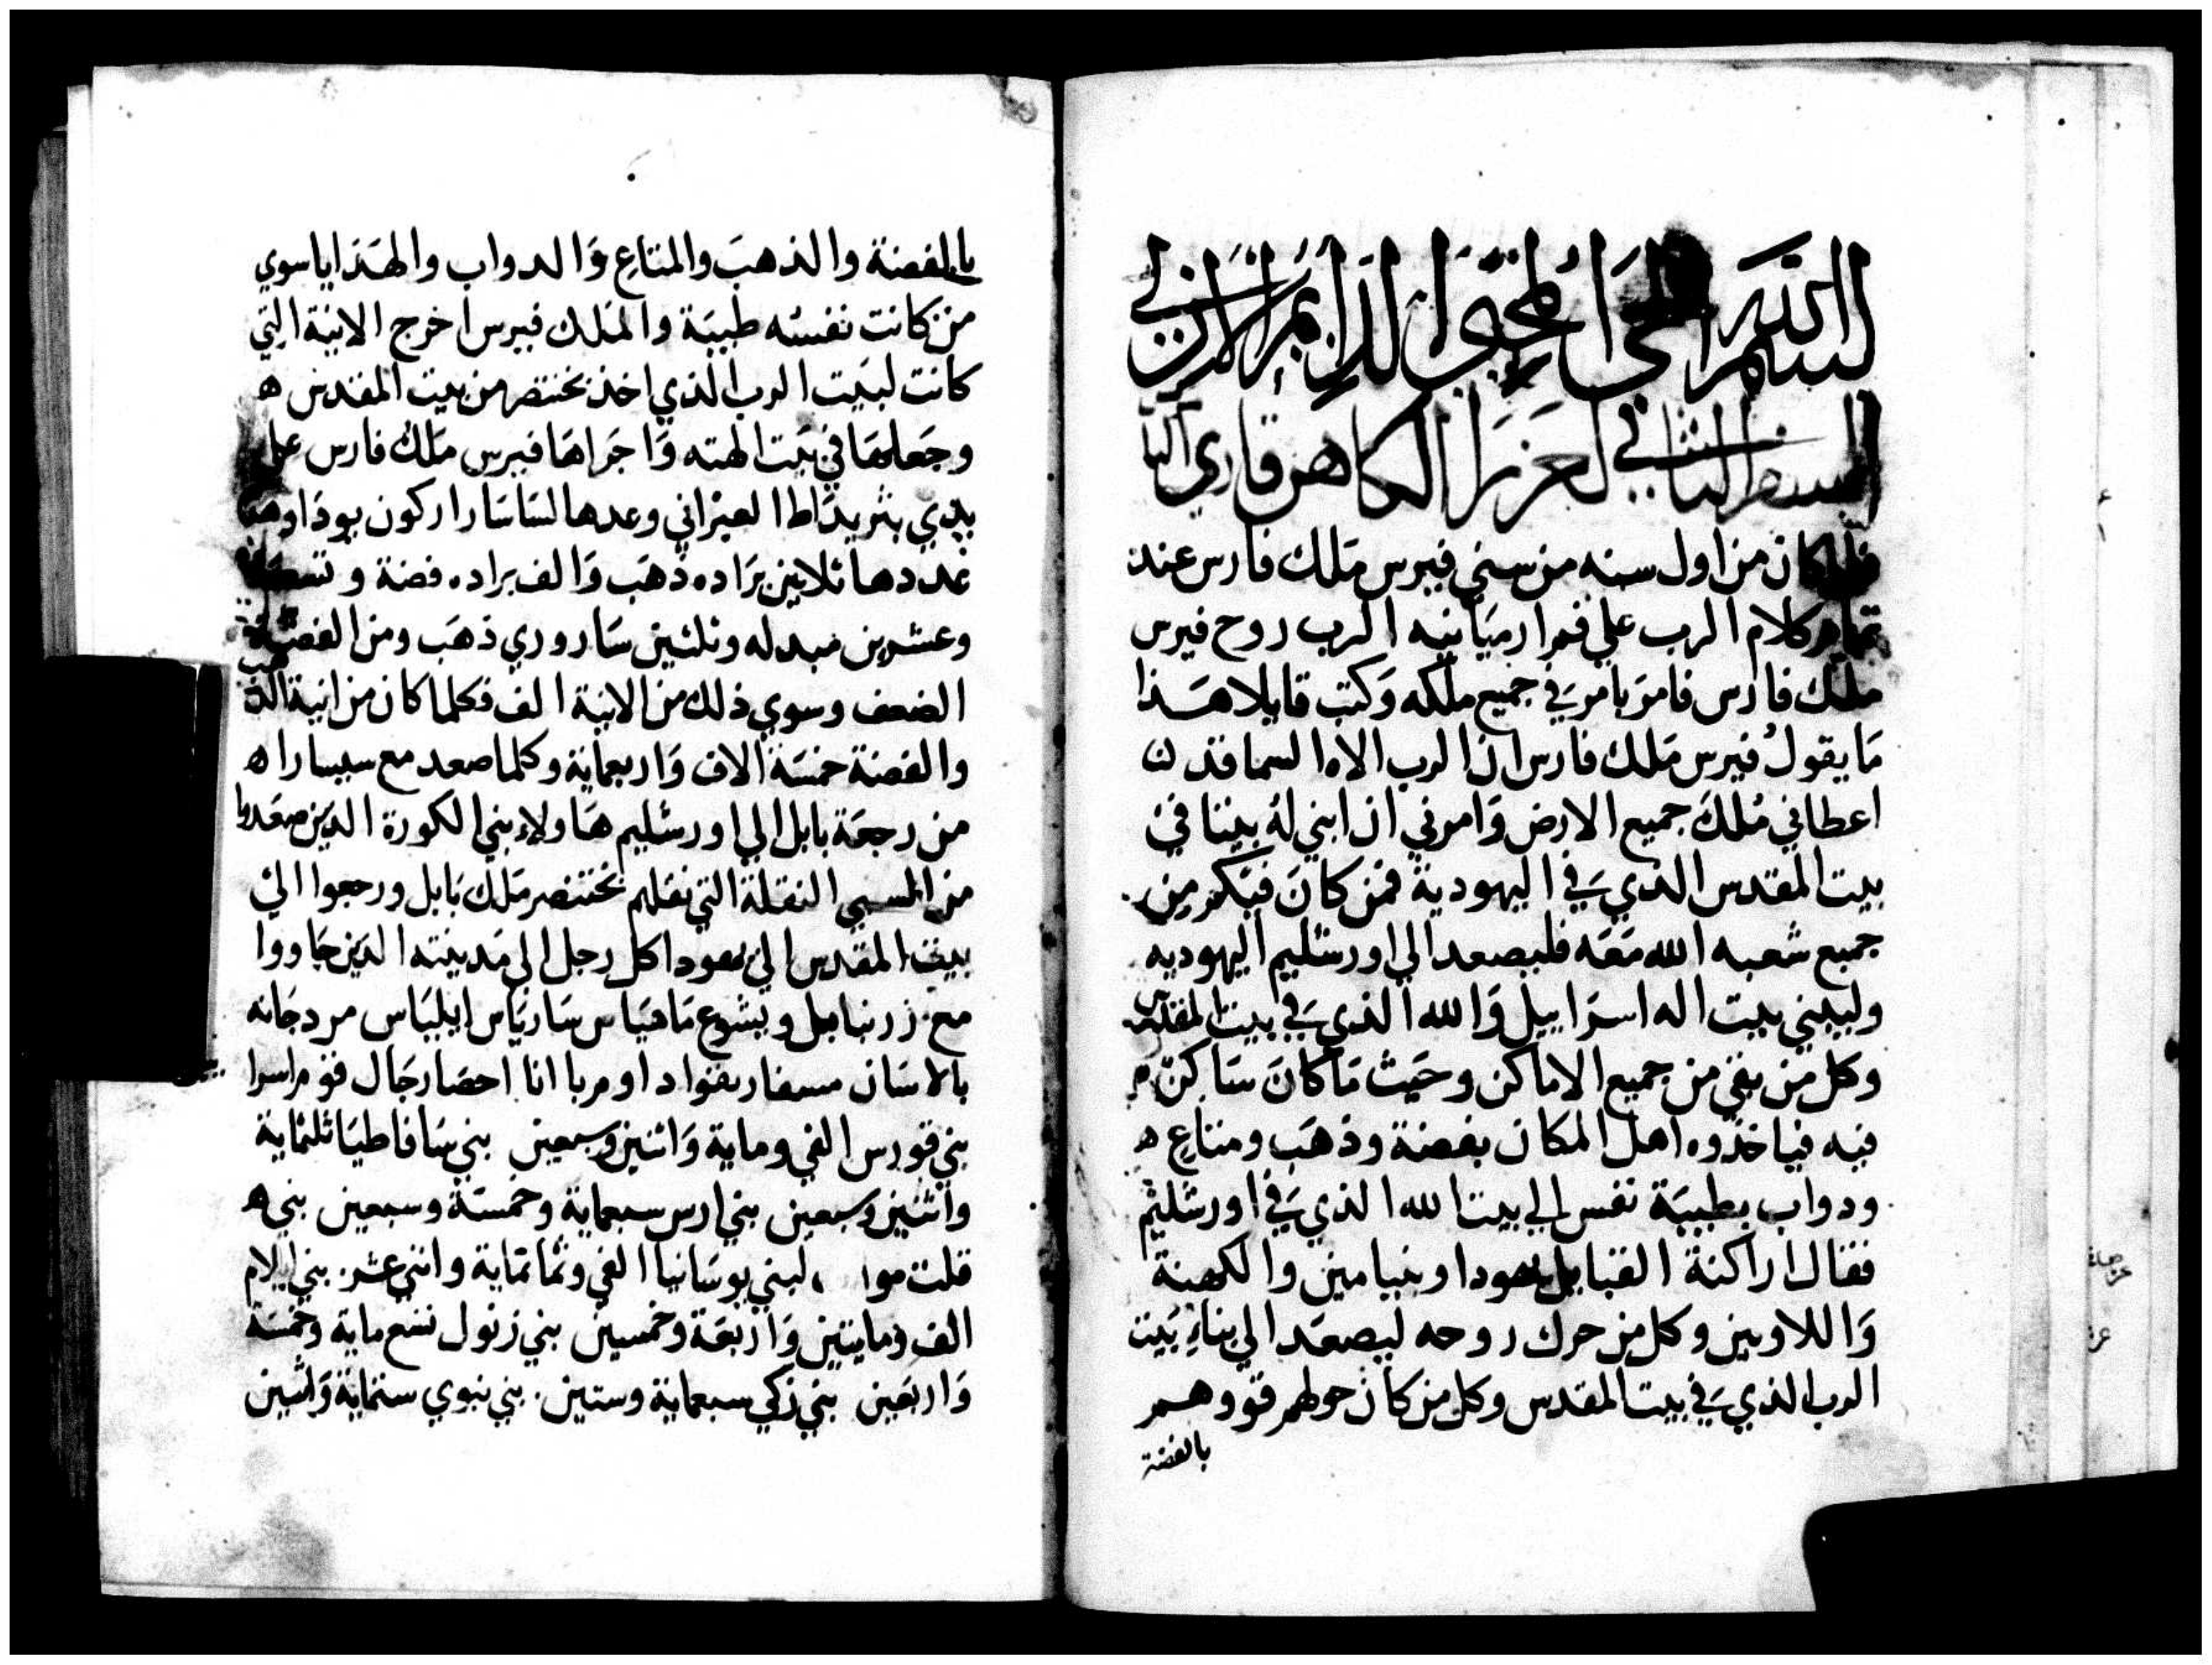 بسم الله الحي المحيي الدايم الازلي
السفر الثاني لعزرا الكاهن قاري
كان من اول سنه من سني فيرس ملك فارس عند
تمام كلام الرب علي فم ارميا نبيه الرب روح فيرس
ملك فارس فامر بامر في جميع ملكه وكتب قايلا هذا
ما يقول فيرس ملك فارس ان الرب الاه السما قد
اعطاني ملك جميع الارض وامرني ان ابني له بيتا في
بيت المقدس الذي في اليهودية فمن كان فيكم من
جميع شعبه الله معه فليصعد الي اورشليم اليهوديه
وليبني بيت اله اسراييل والله الذي في بيت المقدس
وكل من بقي من جميع الاماكن وحيث ما كان ساكن
فيه فياخذوه اهل المكان بفضة وذهب ومتاع ه
ودواب بطيبة نفس الي بيت الله الذي في اورشليم
فقال اراكنة القبايل يهودا وبنيامين والكهنة
واللاويين وكل من حرك روحه ليصعد الي بناء بيت
الرب الذي في بيت المقدس وكل من كان حولهم قووهم
بالفضة
بالفضة والذهب والمتاع والدواب والهدايا سوي
من كانت نفسه طيبة والملك فيرس اخرج الانية التي
كانت لبيت الرب الذي اخذ بختنصر من بيت المقدس ه
وجعلها في بيت الهته واجراها فيرس ملك فارس علي
يدي بثريداطا العبراني وعدها لساسارا ركون يوذا
عددها ثلاثين براده ذهب والف براده فضة
وعشرين مبدله وثلثين ساروري ذهب ومن الفضة
الضعف وسوي ذلك من الانية الف فكلما كان من انية الذهب
والفضة خمسة الاف واربعماية وكلما صعد مع سيسارا ه
من رجعة بابل الي اورشليم هاولاء بني الكورة الذين صعدوا
من السبي النقلة التي نقلهم بختنصر ملك بابل ورجعوا الي
بيت المقدس الي يهودا كل رجل الي مدينته الذين جاووا
مع زربابل ويشوع ماهياس سارياس ايلياس مردجانه
بالاسان مسفار بغواد اومربا انا احصا رجال قوم اسرا
بني قورس الفي وماية واثنين وسبعين بني سافاطيا ثلثماية
واثنين وسبعين بني ارس سبعماية وخمسة وسبعين بني ه
قلت موا لبني يوسانيا الفي وثمانماية واثني عشر بني ايلام
الف ومايتين واربعة وخمسين بني زنول تسع ماية وخمسة
واربعين بني زكي سبعماية وستين بني بنوي ستماية واثنين